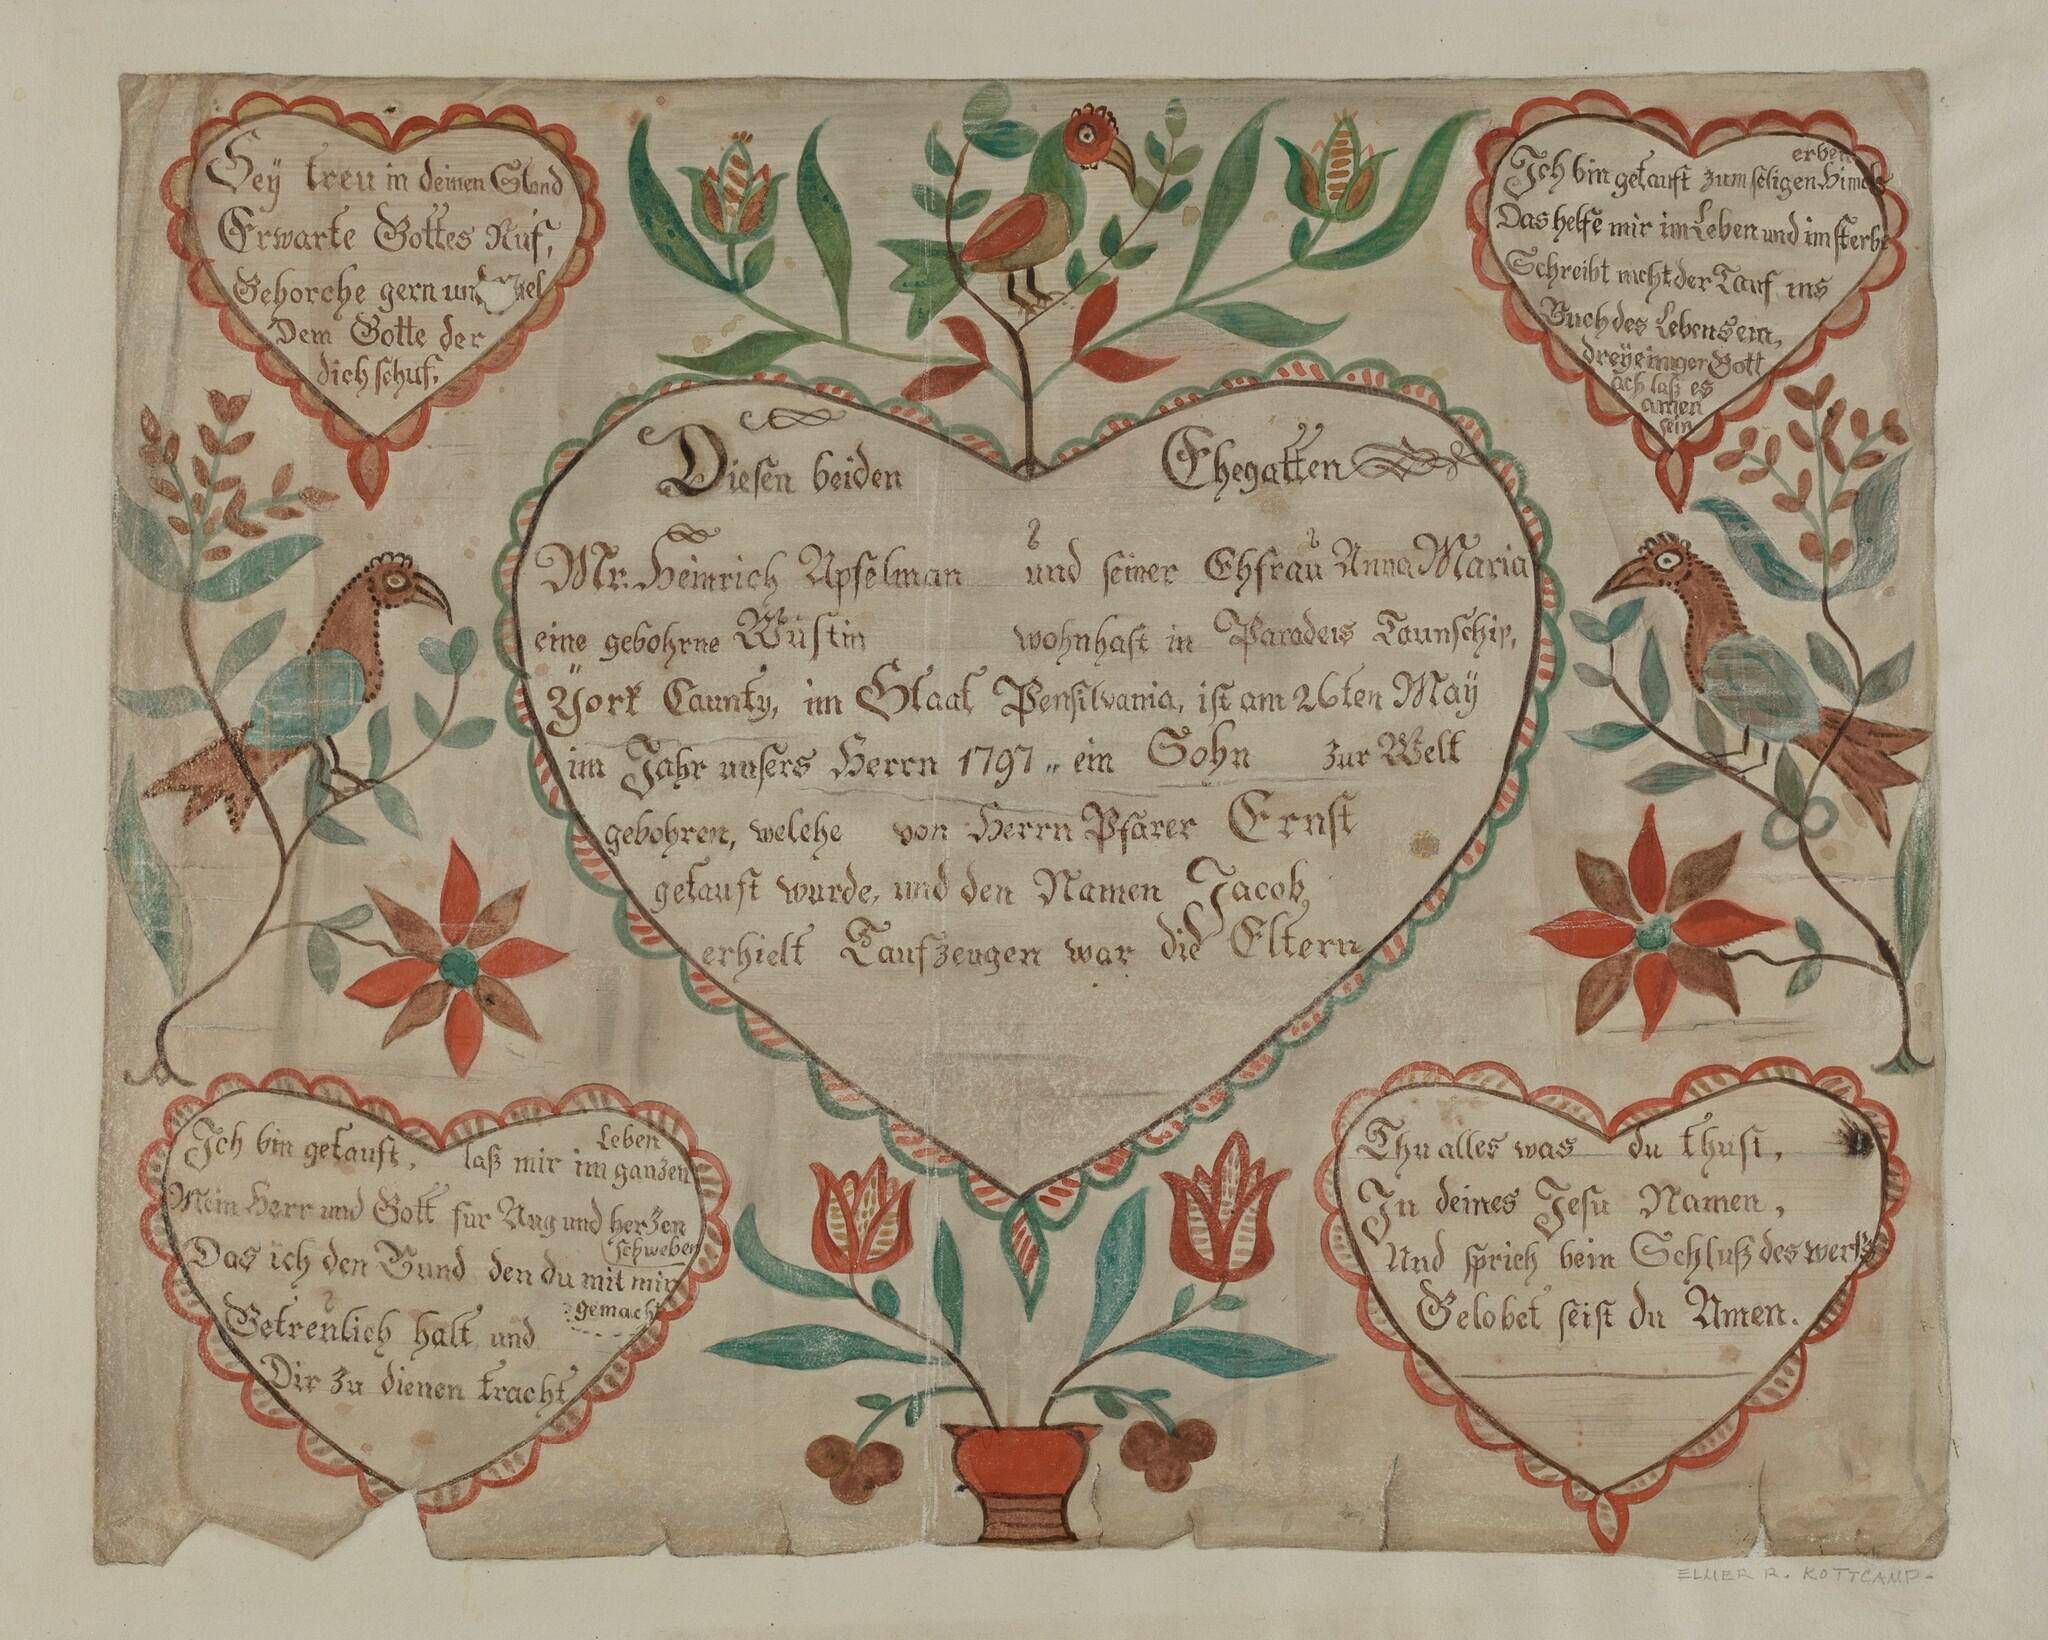 Sey treu in deinen Stand
Erwarte Gottes Ruf,
Gehorche gern un
Dem Gotte der
dich schuf.
erben
Ich bin getauft zum seligen Himels
Das helfe mir im Leben und im sterbe
Schreibt nicht der Tauf ins
Buch des Lebens ein,
dreyeiniger Gott
ach laß es
amen
sein
Diesen beiden Ehegatten
Mr. Heinrich Apfelman und seiner Ehfrau Anna Maria
eine gebohrne Wüstin wohnhaft in Paradeis Taunschip,
York Caunty, im Staat Pensilvania, ist am 26ten May
im Jahr unsers Herrn 1797 „ ein Sohn zur Welt
gebohren, welche von Herrn Pfarer Ernst
getauft wurde, und den Namen Jacob
erhielt Taufzeugen war die Eltern
Leben
Ich bin getauft, laß mir im ganzen
Mein Herr und Gott fur Aug und herzen
schweben
Das ich den Bund den du mit mir
gemacht
Getreulich halt und
Dir zu dienen tracht
Thu alles was du thust,
In deines Jesu Namen,
Und sprich bein Schluß des werks
Gelobet seist du Amen.
ELMER R. KOTTCAMP-